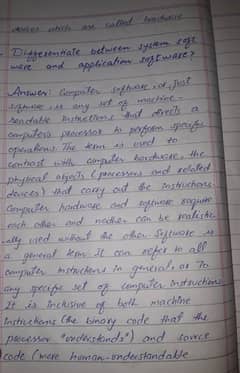 devices which are called hardware
Differentiate between system soft
ware and application software?
Answer: Computer software, or just
software is any set of machine-
readable instructions that directs a
computer's processor to perform specific
operations. The term is used to
contrast with computer hardware, the
physical objects (processors and related
devices) that carry out the instructions.
Computer hardware and software require
each other and neither can be realistic
-ally used without the other. Software is
a general term. It can refer to all
computer instructions in general, or to
any specific set of computer instructions.
It is inclusive of both machine
instructions (the binary code that the
processor "understands") and source
code (more human-understandable